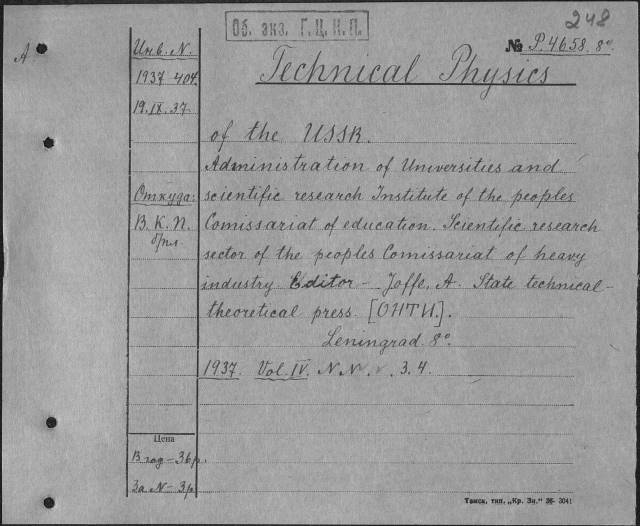 248
Об. экз. Г.Ц.К.П.
№ P.4658. 8º
A
Technical Physics
Инв. N.
1937-404.
19.IX.37.
of the USSR.
Administration of Universities and
Откуда:
scientific research Institute of the peoples
В.К.П.
Comissariat of education. Scientific research
sector of the peoples Comissariat of heavy
industry Editor - Joffe, A. State technical-
theoretical press. [ОНТИ.].
Leningrad. 8º.
1937. Vol. IV. N.N. 3. 4.
Цена
В год - 36р.
За N - 3р
Томск, тип. „Кр. Зн." 36- 3041